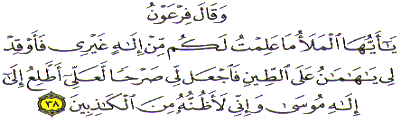 وَقَالَ فِرْعَوْنُ
يَٰٓأَيُّهَا ٱلْمَلَأُ مَا عَلِمْتُ لَكُم مِّنْ إِلَٰهٍ غَيْرِى فَأَوْقِدْ
لِى يَٰهَٰمَٰنُ عَلَى ٱلطِّينِ فَٱجْعَل لِّى صَرْحًا لَّعَلِّىٓ أَطَّلِعُ إِلَىٰٓ
إِلَٰهِ مُوسَىٰ وَإِنِّى لَأَظُنُّهُۥ مِنَ ٱلْكَٰذِبِينَ ٣٨